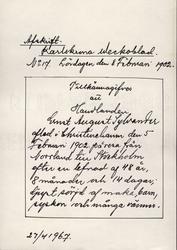 Afskrift.
Karlskrona Weckoblad.
No 17. Lördagen den 8 Februari 1902.
Tillkännagifves
att
Handlanden
Ernst August Sylvander
afled i Christinehamn den 5
Februari 1902, på resa från
Norrland till Stockholm
efter en lefnad af 48 år,
8 månader och 14 dagar,
djupt sörjd af maka, barn,
syskon och många vänner.
27/4 1967.